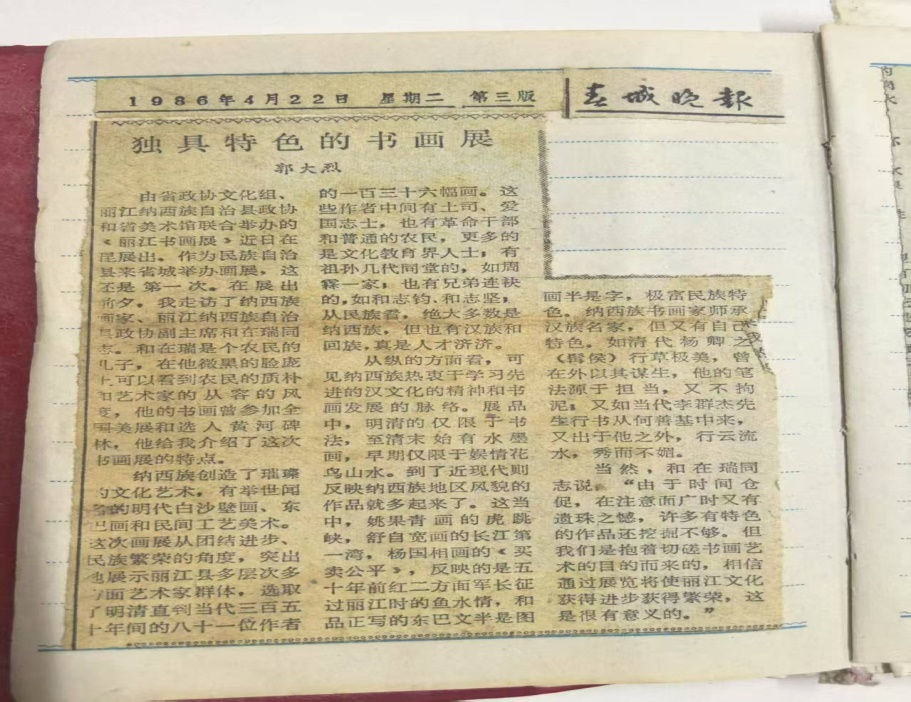 1986年4月22日 星期二 第三版
春城晚報
独具特色的书画展
郭大烈
由省政协文化组、
丽江纳西族自治县政协
和省美术馆联合举办的
《丽江书画展》近日在
昆展出。作为民族自治
县来省城举办画展，这
还是第一次。在展出
前夕。我走访了纳西族
画家、丽江纳西族自治
县政协副主席和在瑞同
志。和在瑞是个农民的
儿子，在他微黑的脸庞
上可以看到农民的质朴
和艺术家的从容的风
度，他的书画曾参加全
国美展和选入黄河碑
林，他给我介绍了这次
书画展的特点。
纳西族创造了璀璨
的文化艺术，有举世闻
名的明代白沙壁画、东
巴画和民间工艺美术。
这次画展从团结进步、
民族繁荣的角度，突出
地展示丽江县多层次多
方面艺术家群体，选取
了明清直到当代三百五
十年间的八十一位作者
的一百三十六幅画。这
些作者中间有土司、爱
国志士，也有革命干部
和普通的农民，更多的
是文化教育界人士；有
祖孙几代同堂的，如周
霖一家；也有兄弟连袂
的，如和志钧、和志坚；
从民族看，绝大多数是
纳西族，但也有汉族和
回族，真是人才济济。
从纵的方面看，可
见纳西族热衷于学习先
进的汉文化的精神和书
画发展的脉络。展品
中，明清的仅限于书
法，至清末始有水墨
画，早期仅限于娱情花
鸟山水。到了近现代则
反映纳西族地区风貌的
作品就多起来了。这当
中，姚果青画的虎跳
峡，舒自宽画的长江第
一湾，杨国相画的《买
卖公平》，反映的是五
十年前红二方面军长征
过丽江时的鱼水情，和
品正写的东巴文半是图
画半是字，极富民族特
色。纳西族书画家师承
汉族名家，但又有自己
特色。如清代杨卿之
（髯侯）行草极美，曾
在外以其谋生，他的笔
法源于担当，又不拘
泥；又如当代李群杰先
生行书从何善基中来，
又出于他之外，行云流
水，秀而不媚。
当然，和在瑞同
志说，“由于时间仓
促，在注意面广时又有
遗珠之憾，许多有特色
的作品还挖掘不够。但
我们是抱着切磋书画艺
术的目的而来的，相信
通过展览将使丽江文化
获得进步获得繁荣，这
是很有意义的。”